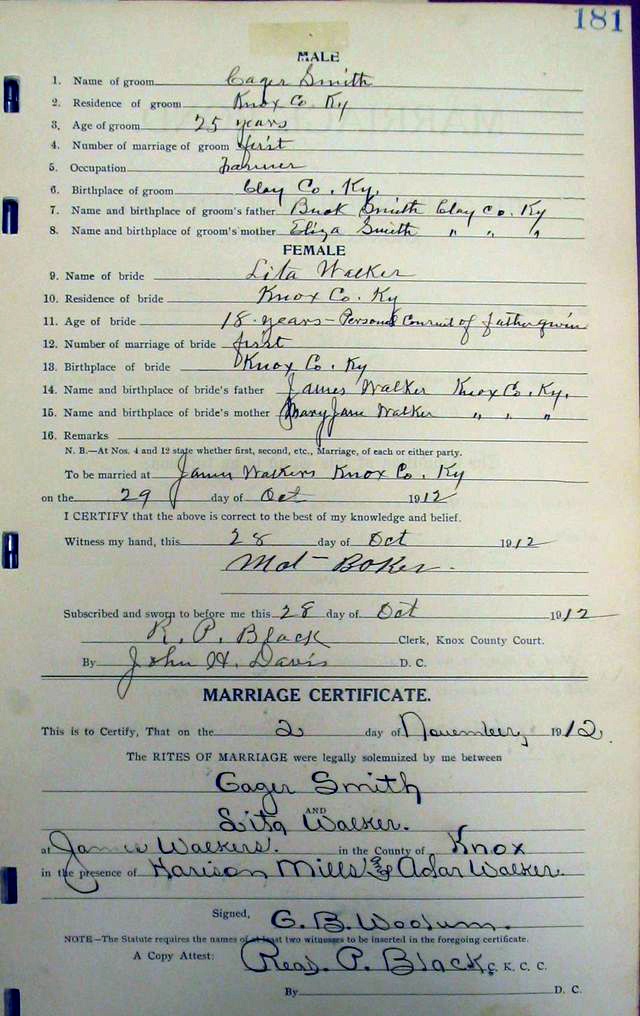 181
MALE
1. Name of groom Cager Smith
2. Residence of groom Knox Co Ky
3. Age of groom 25 years
4. Number of marriage of groom first
5. Occupation Farmer
6. Birthplace of groom Clay Co. Ky.
7. Name and birthplace of groom's father Buck Smith Clay Co. Ky
8. Name and birthplace of groom's mother Eliza Smith " " "
FEMALE
9. Name of bride Lita Walker
10. Residence of bride Knox Co. Ky
11. Age of bride 18 years – Personal Consent of father given
12. Number of marriage of bride first
13. Birthplace of bride Knox Co. Ky
14. Name and birthplace of bride's father James Walker Knox Co. Ky.
15. Name and birthplace of bride's mother Mary Jane Walker " " "
16. Remarks
N. B.—At Nos. 4 and 12 state whether first, second, etc., Marriage, of each or either party.
To be married at James Walkers Knox Co. Ky
on the 29 day of Oct 1912
I CERTIFY that the above is correct to the best of my knowledge and belief.
Witness my hand, this 28 day of Oct 1912
Mat Baker
Subscribed and sworn to before me this 28 day of Oct 1912
R. P. Black Clerk, Knox County Court.
By John H. Davis D. C.
MARRIAGE CERTIFICATE.
This is to Certify, That on the 2 day of November, 1912.
The RITES OF MARRIAGE were legally solemnized by me between
Cager Smith
AND
Lita Walker.
at James Walkers. in the County of Knox
in the presence of Harison Mills & Adar Walker.
Signed, G. B. Woodum.
NOTE—The Statute requires the names of at least two witnesses to be inserted in the foregoing certificate.
A Copy Attest: Read P. Black C. K. C. C.
By D. C.